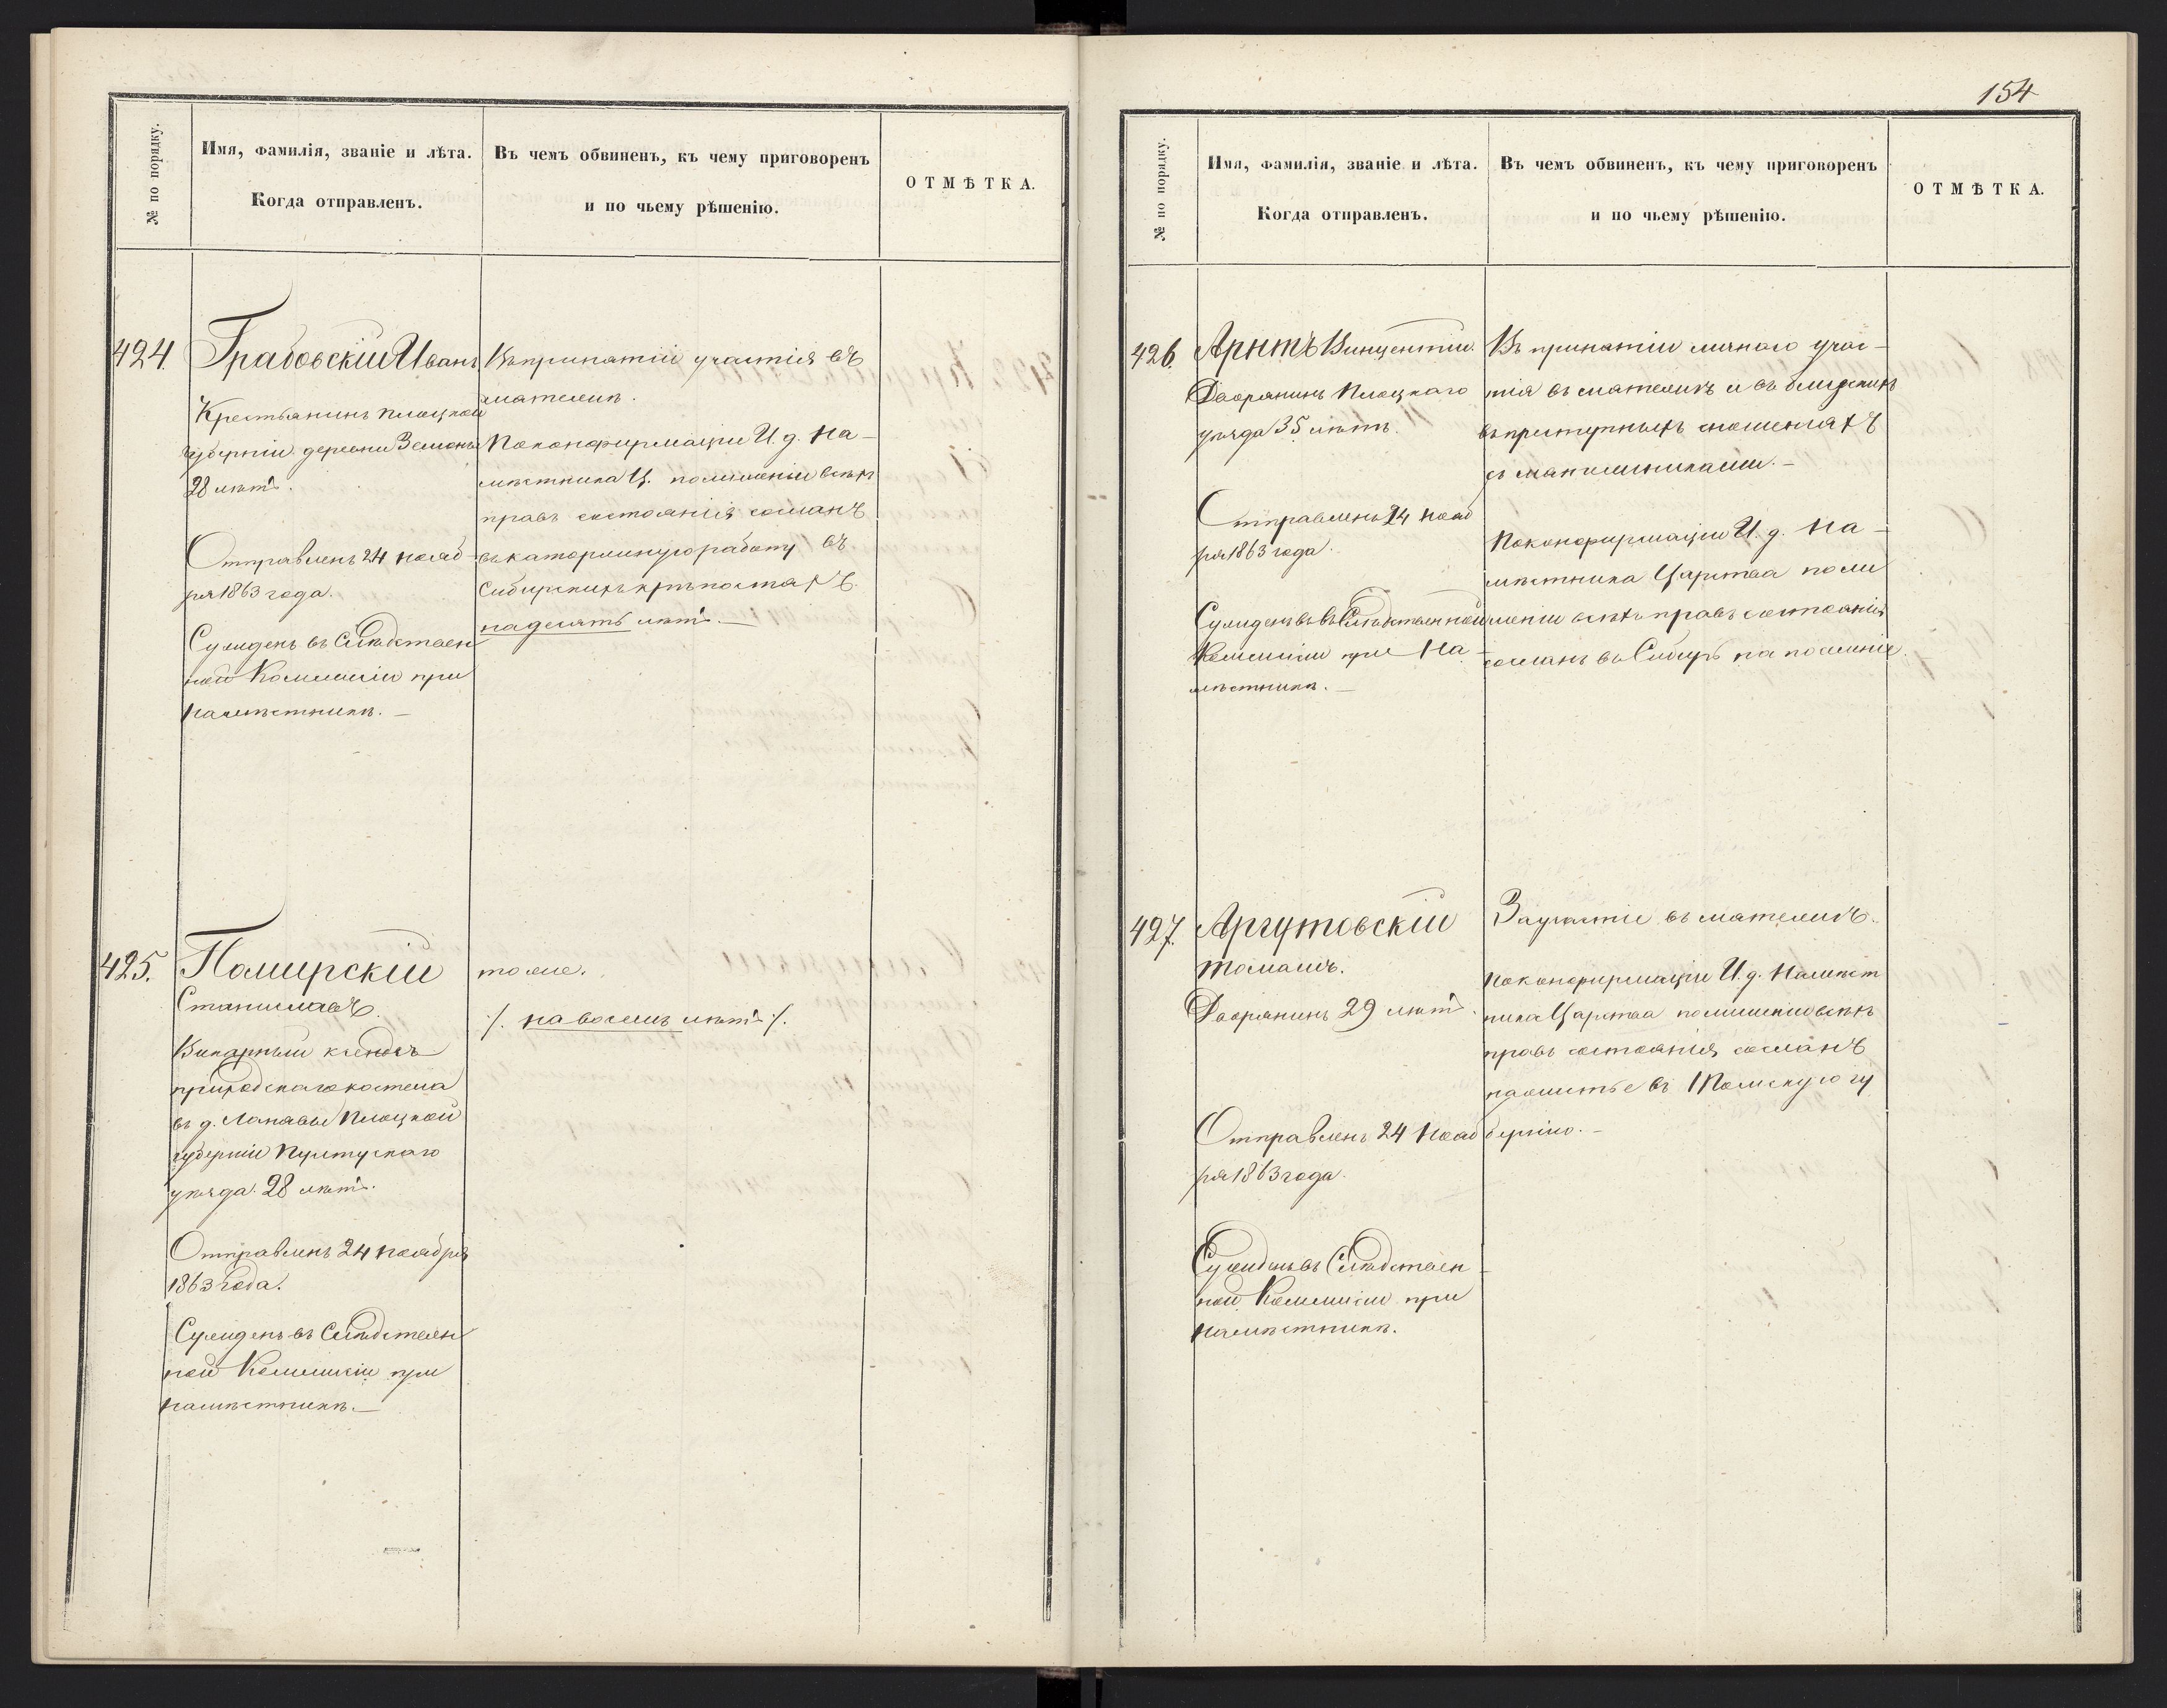 № по порядку.
Имя, фамилія, званіе и лѣта.
Когда отправленъ.
Въ чемъ обвиненъ, къ чему приговоренъ
и по чьему рѣшенію.
ОТМѢТКА.
424.
Грабовскій Иванъ
Крестьянинъ Плоцкой
губерніи деревни
28 лѣтъ.
Отправленъ 24 нояб
ря 1863 года.
Сужденъ въ Слѣдствен
ной Коммисіи при
Намѣстникѣ. —
Въ принятіи участія въ
мятежѣ.
По конфирмаціи И. д. На-
мѣстника Ц. по лишеніи всѣхъ
правъ состоянія сосланъ
въ каторжную работу въ
Сибирскихъ крѣпостяхъ
на десять лѣтъ. —
425.
Помирскій
Станиславъ.
Викарный ксендзъ
приходскаго костела
въ д. Плоцкой
губерніи Пултускаго
уѣзда. 28 лѣтъ.
Отправленъ 24 ноября
1863 года.
Сужденъ въ Слѣдствен
ной Коммисіи при
Намѣстникѣ. —
тоже.
./. на восемь лѣтъ ./.
154
№ по порядку.
Имя, фамилія, званіе и лѣта.
Когда отправленъ.
Въ чемъ обвиненъ, къ чему приговоренъ
и по чьему рѣшенію.
ОТМѢТКА.
426.
Арнтъ Винцентій.
Дворянинъ Плоцкаго
уѣзда 35 лѣтъ.
Отправленъ 24 нояб
ря 1863 года.
Сужденъ въ Слѣдственной
Коммисіи при На-
мѣстникѣ. —
Въ принятіи личнаго учас-
тія въ мятежѣ и въ близкихъ
въ преступныхъ сношеніяхъ
съ мятежниками. —
По конфирмаціи И. д. На-
мѣстника Царства по ли
шеніи всѣхъ правъ состоянія
сосланъ въ Сибирь на поселеніе.
427.
Аргутовскій
Томашъ.
Дворянинъ 29 лѣтъ.
Отправленъ 24 нояб
ря 1863 года.
Сужденъ въ Слѣдствен-
ной Коммисіи при
Намѣстникѣ.
За участіе въ мятежѣ.
По конфирмаціи И. д. Намѣст
ника Царства по лишеніи всѣхъ
правъ состоянія сосланъ
на житье въ Томскую гу
бернію. —